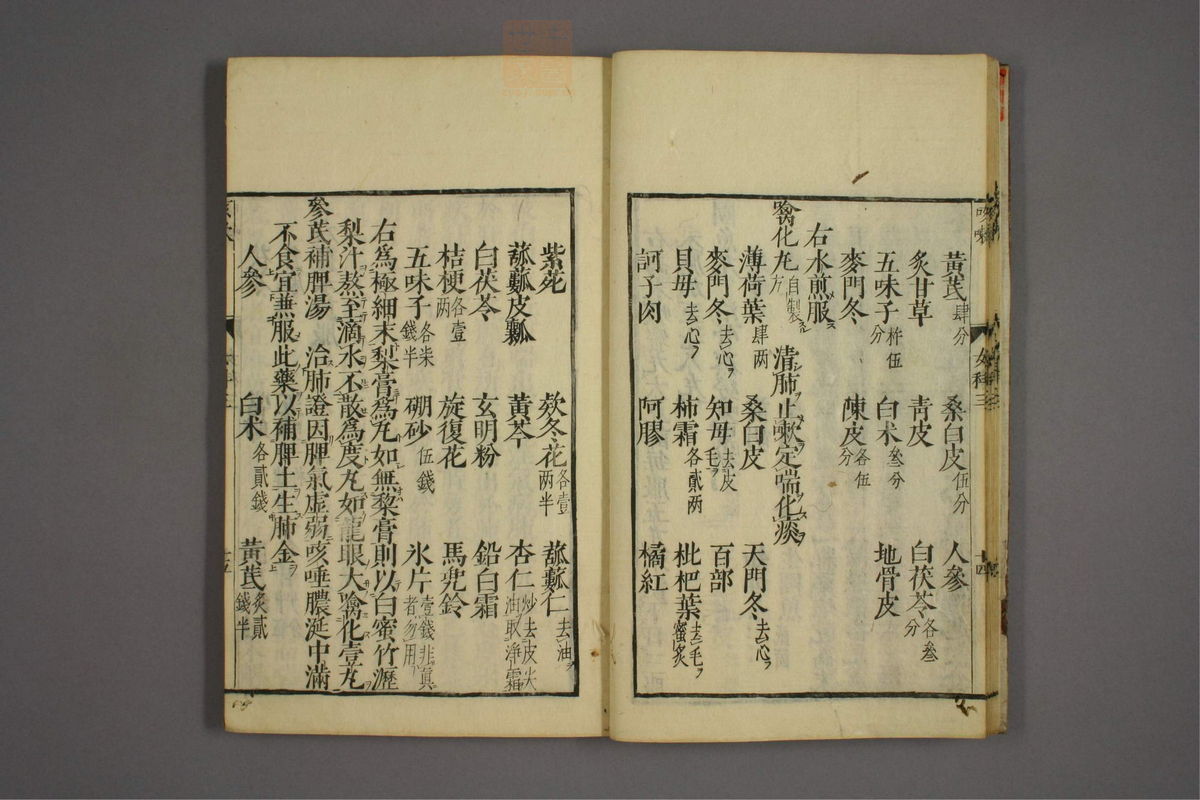 黃芪肆分 桑白皮伍分 人參
炙甘草 青皮 白茯苓各叁分
五味子杵伍分 白朮叁分 地骨皮
麥門冬 陳皮各伍分
右水煎服
噙化丸自製方 清肺止嗽定喘化痰
薄荷葉肆两 桑白皮 天門冬去心ヲ
麥門冬去心ヲ 知母去皮毛ヲ 百部
貝母去心ヲ 柿霜各貳两 枇杷葉去毛ヲ蜜炙
訶子肉 阿膠 橘紅
紫菀 欵冬花各壹两半 蓏蔞仁去油ヲ
蓏蔞皮瓤 黃芩 杏仁炒去皮尖油取淨霜
白茯苓 玄明粉 鉛白霜
桔梗各壹两 旋復花 馬兜鈴
五味子各柒錢半 硼砂伍錢 氷片壹錢非真者勿用
右爲極細末梨膏爲丸如無梨膏則以白蜜竹瀝
梨汁熬至滴水不散爲度丸如龍眼大噙化壹丸
參芪補脾湯 治肺證因脾氣虛弱咳唾膿涎中滿
不食宜兼服此藥以補脾土生肺金
人參 白朮各貳錢 黃芪炙貳錢半